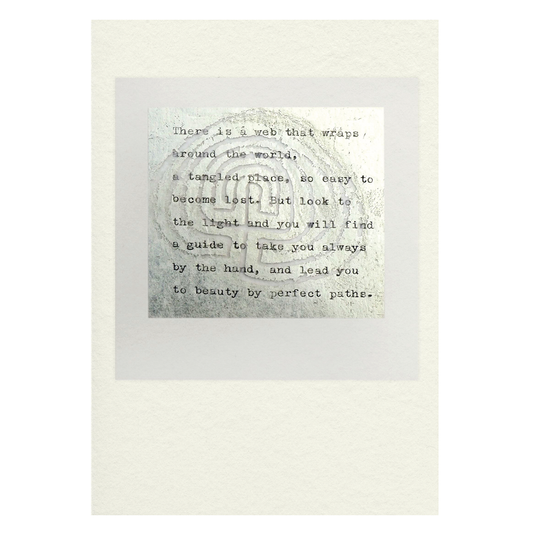 There is a web that wraps
around the world,
a tangled place, so easy to
become lost. But look to
the light and you will find
a guide to take you always
by the hand, and lead you
to beauty by perfect paths.